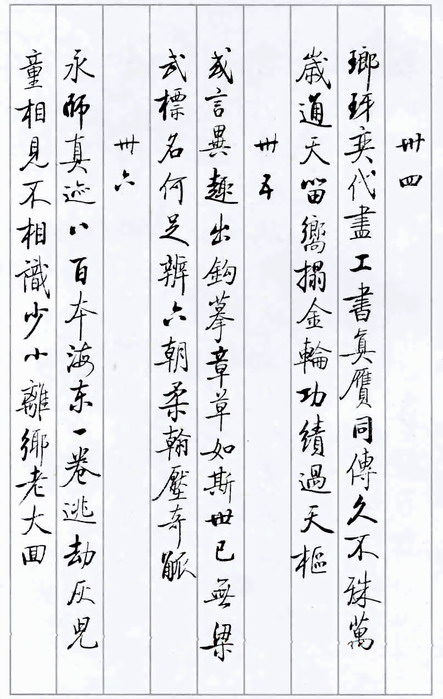 卌四
瑯玡奕代盡工書真贗同傳久不殊萬
歲通天留嚮搨金輪功績過天樞
卌五
或言異趣出鈎摹章草如斯世已無梁
武標名何足辨六朝柔翰壓奇觚
卌六
永師真迹八百本海东一卷逃劫灰兒
童相見不相識少小離鄉老大回